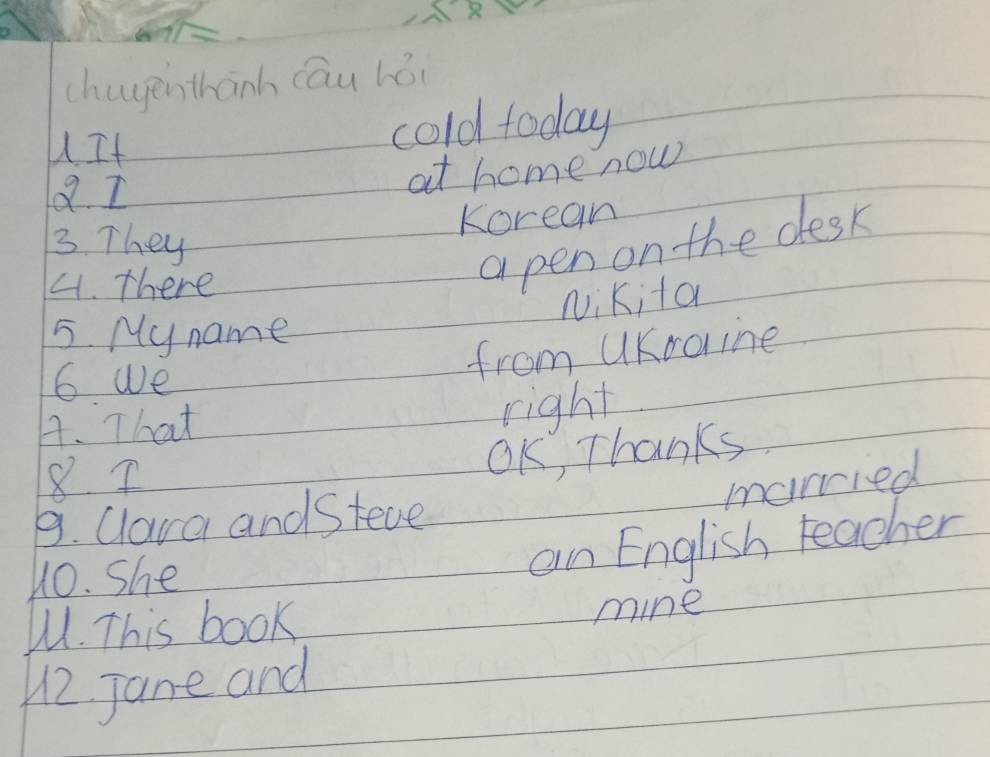 chuyển thành câu hỏi
1. It cold today
2. I at home now
3. They Korean
4. there a pen on the desk
5. My name Nikita
6. We from Ukraine
7. That right
8. I OK, Thanks
9. Clara and Steve married
10. She an English teacher
11. This book mine
12. Jane and